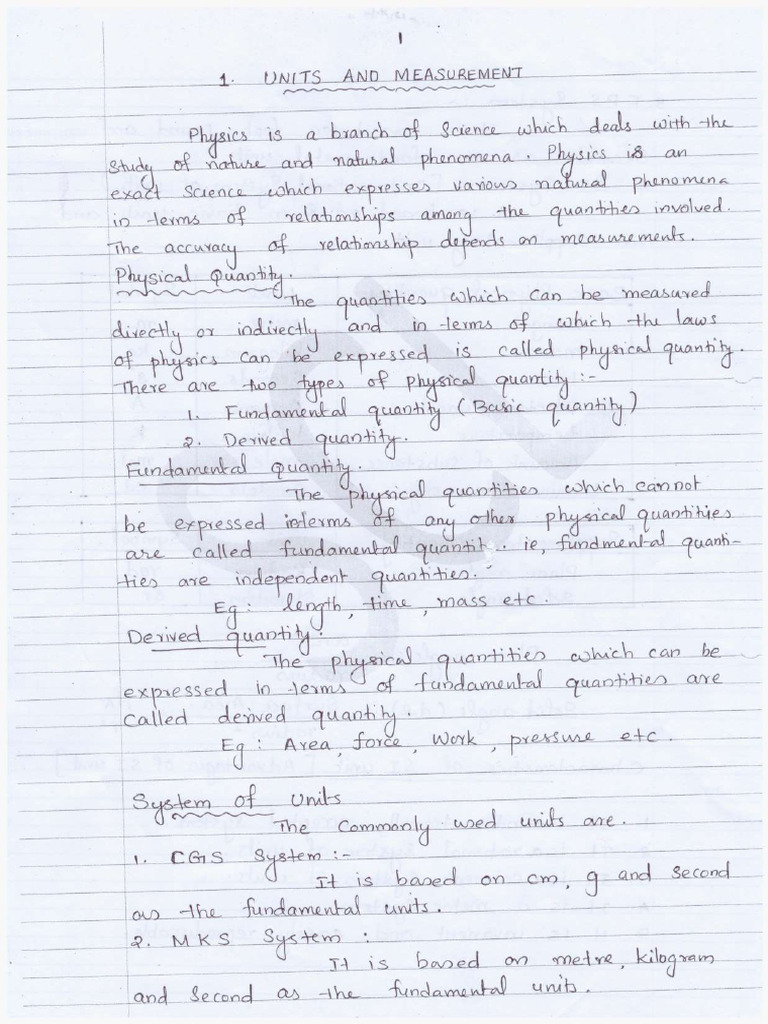 1
1. UNITS AND MEASUREMENT
Physics is a branch of Science which deals with the
study of nature and natural phenomena. Physics is an
exact Science which expresses various natural phenomena
in terms of relationships among the quantities involved.
The accuracy of relationship depends on measurements.
Physical Quantity.
The quantities which can be measured
directly or indirectly and in terms of which the laws
of physics can be expressed is called physical quantity.
There are two types of physical quantity :-
1. Fundamental quantity (Basic quantity)
2. Derived quantity.
Fundamental Quantity.
The physical quantities which cannot
be expressed interms of any other physical quantities
are called fundamental quantit . ie, fundmental quanti-
ties are independent quantities.
Eg : length, time, mass etc.
Derived quantity.
The physical quantities which can be
expressed in terms of fundamental quantities are
called derived quantity.
Eg : Area, force, work, pressure etc.
System of Units
The Commonly used units are.
1. CGS System :-
It is based on cm, g and second
as the fundamental units.
2. MKS System :
It is based on metre, kilogram
and second as the fundamental units.